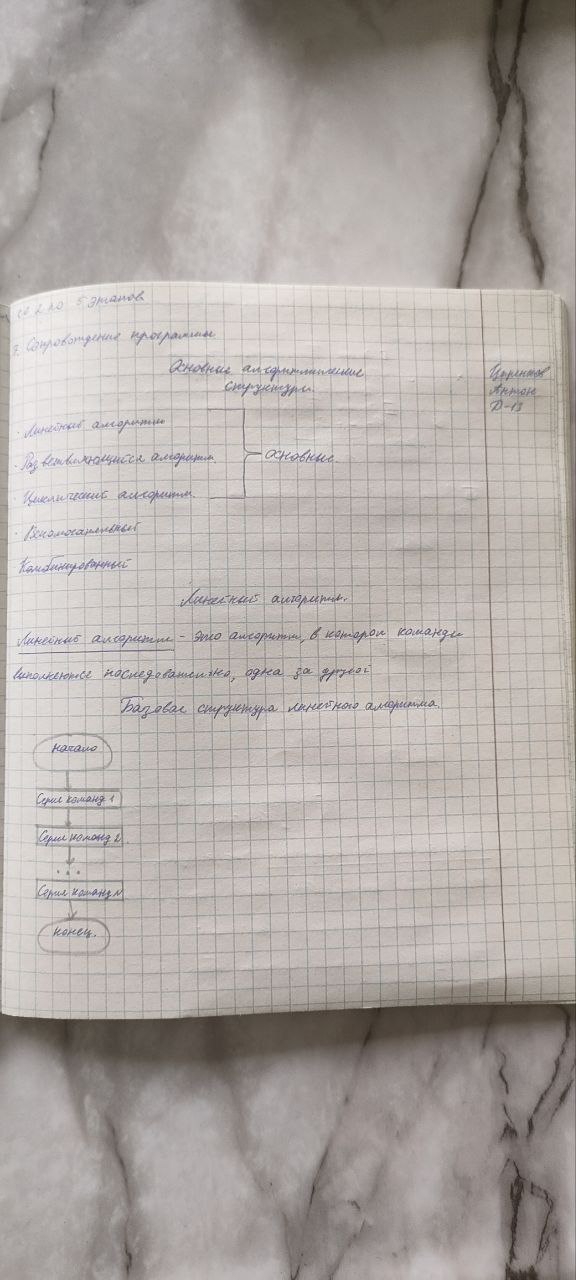 со 2 по 5 этапов
7. Сопровождение программы
Основные алгоритмические
структуры.
Цырентов
Антон
Д-13
· Линейный алгоритм
· Разветвляющийся алгоритм.
основные.
· Циклический алгоритм.
· Вспомогательный
Комбинированный
Линейный алгоритм.
Линейный алгоритм - это алгоритм, в котором команды
выполняются последовательно, одна за другой
Базовая структура линейного алгоритма
начало
Серия команд 1
Серия команд 2
...
Серия команд N
конец.